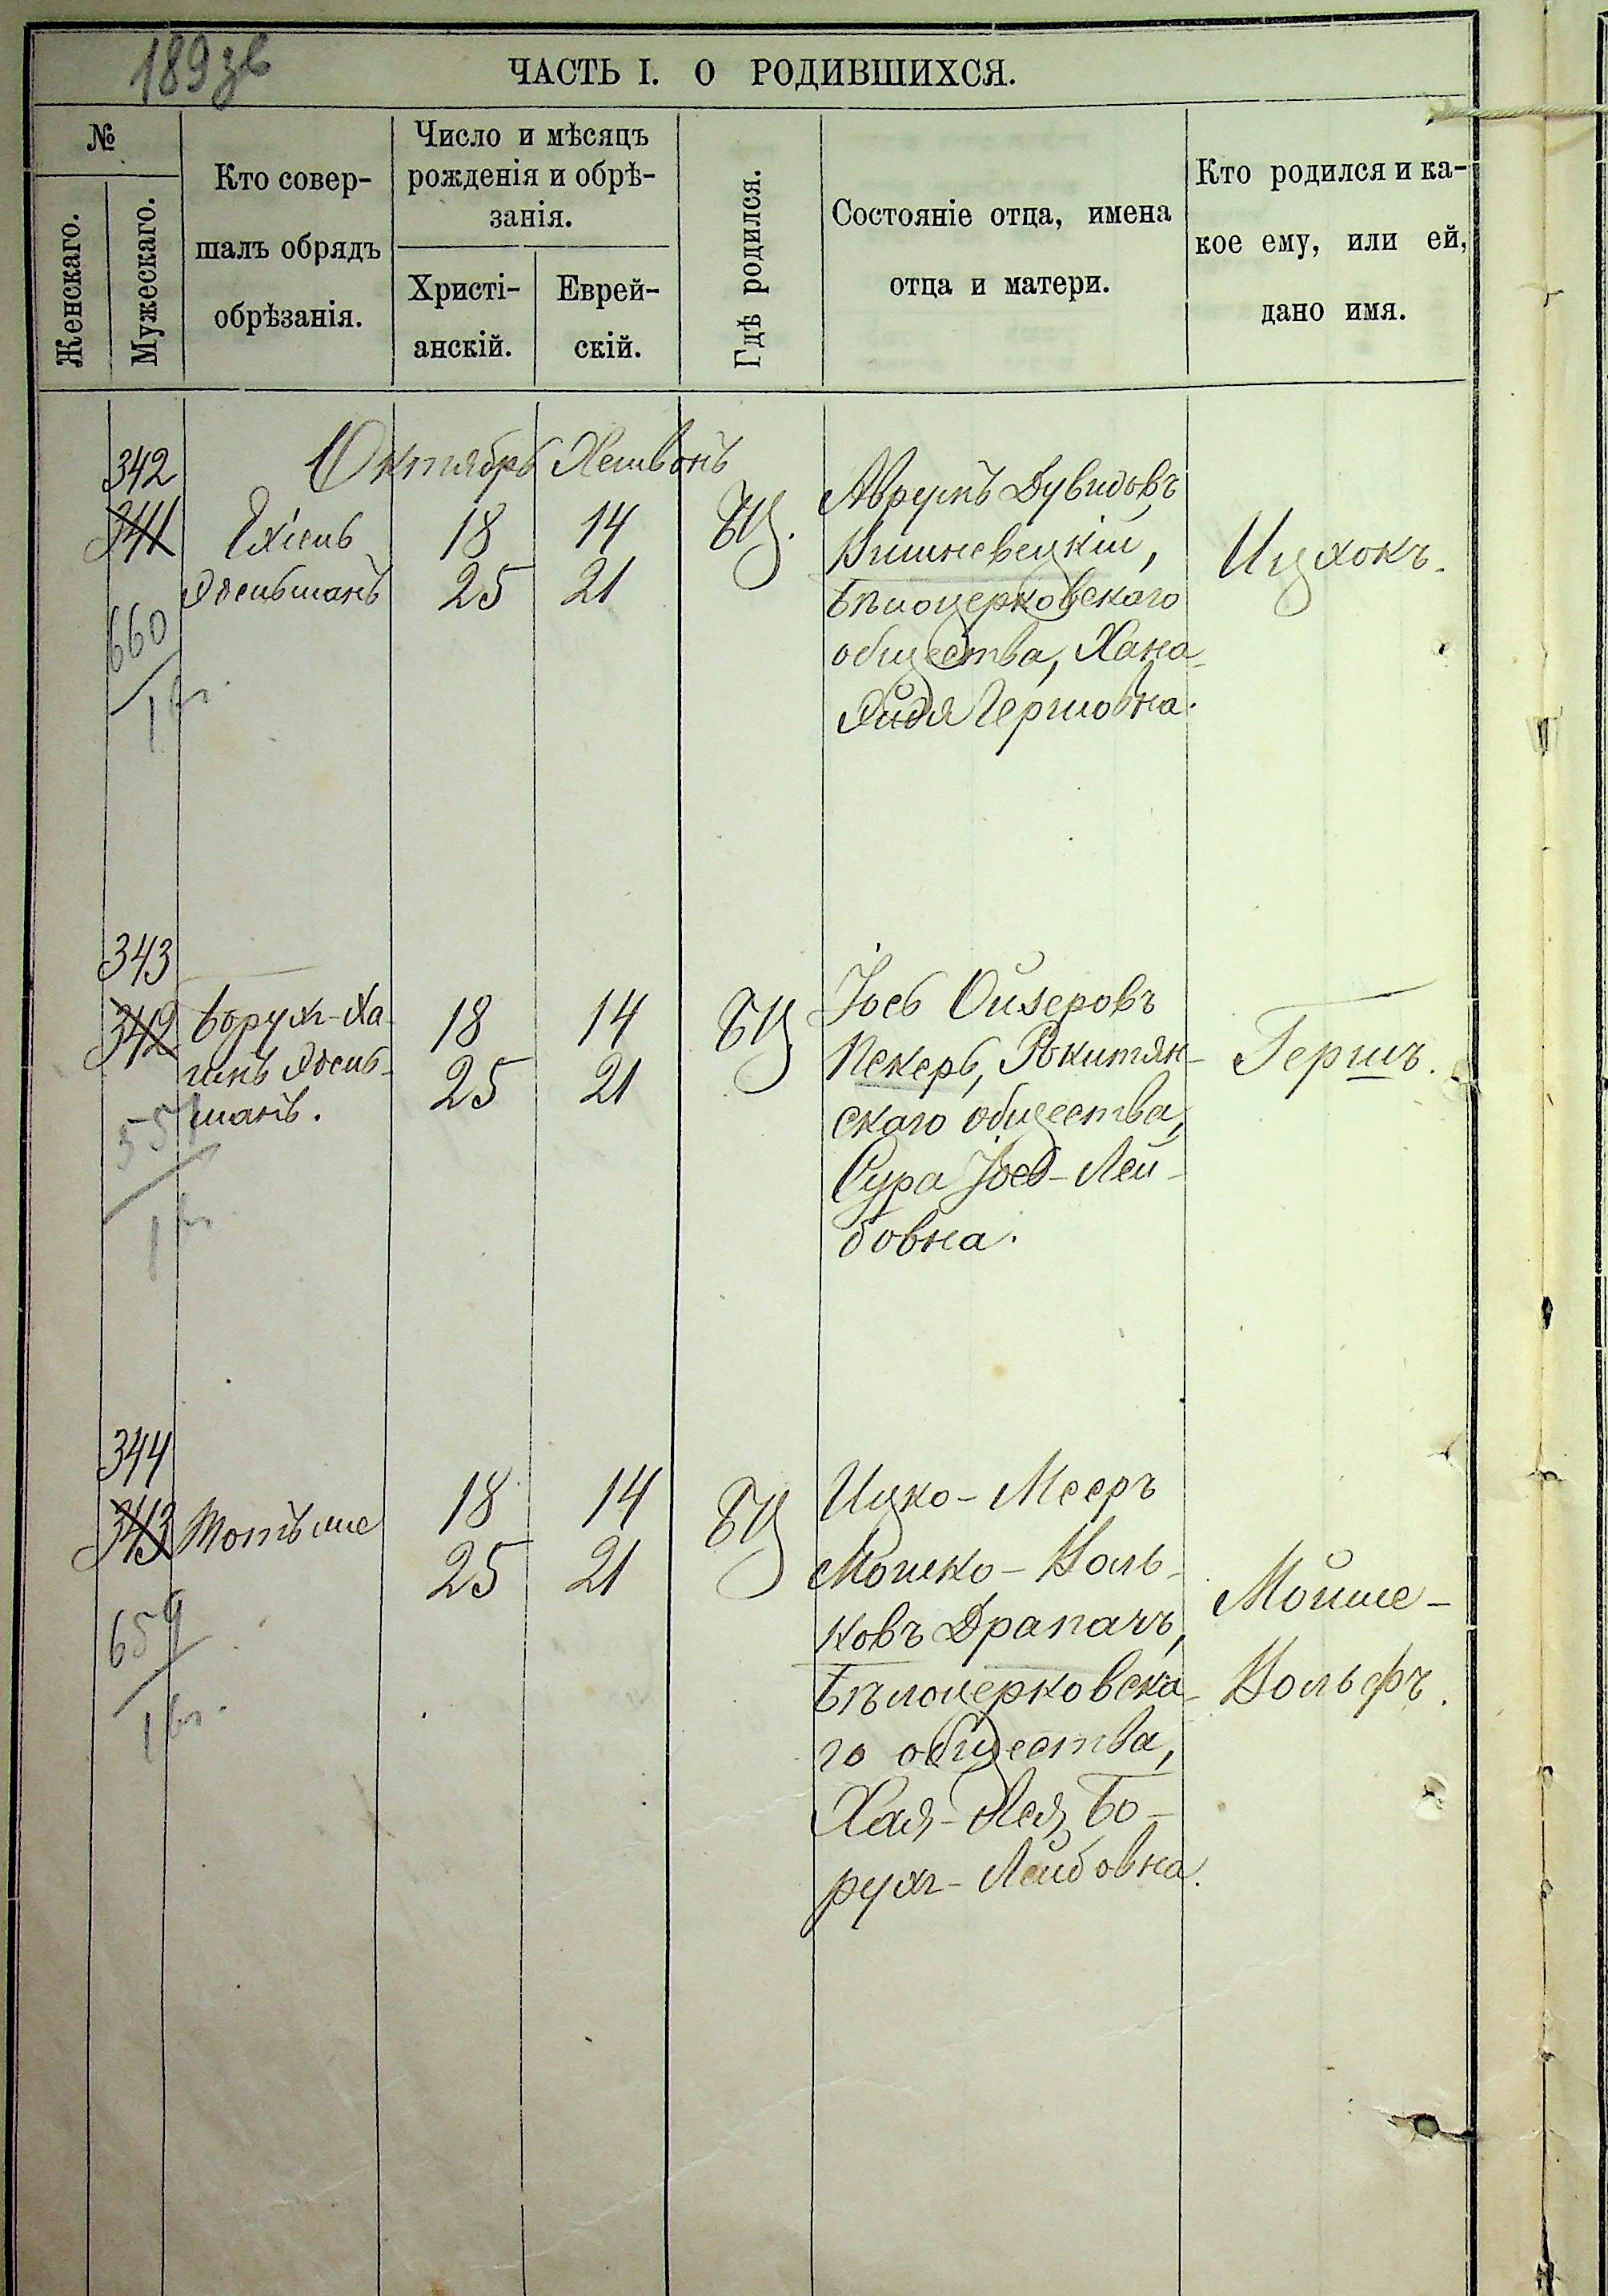 189зв
ЧАСТЬ I. О РОДИВШИХСЯ.
№
Женскаго.
Мужескаго.
Кто совер-
шалъ обрядъ
обрѣзанія.
Число и мѣсяцъ
рожденія и обрѣ-
занія.
Христі-
анскій.
Еврей-
скій.
Гдѣ родился.
Состояніе отца, имена
отца и матери.
Кто родился и ка-
кое ему, или ей,
дано имя.
Октябрь Хешвонъ
342
341
660
Ехіель
Эдельманъ
18 14
25 21
БЦ.
Аврумъ Дувидовъ
Вишневецкій,
Бѣлоцерковскаго
общества, Хана-
Эйдя Гершовна.
Ицхокъ.
343
342
Борухъ-Ха-
имъ Эдель-
манъ.
18 14
25 21
БЦ
Іось Ойзеровъ
Пекеръ, Рокитян-
скаго общества,
Сура Іось-Лей-
бовна.
Гершъ.
344
343
659
18 14
25 21
БЦ
Ицко-Мееръ
Мошко-Воль-
ковъ Драпачъ,
Бѣлоцерковска-
го общества,
Хая-Лея Бо-
рухъ-Лейбовна.
Мойше-
Вольфъ.